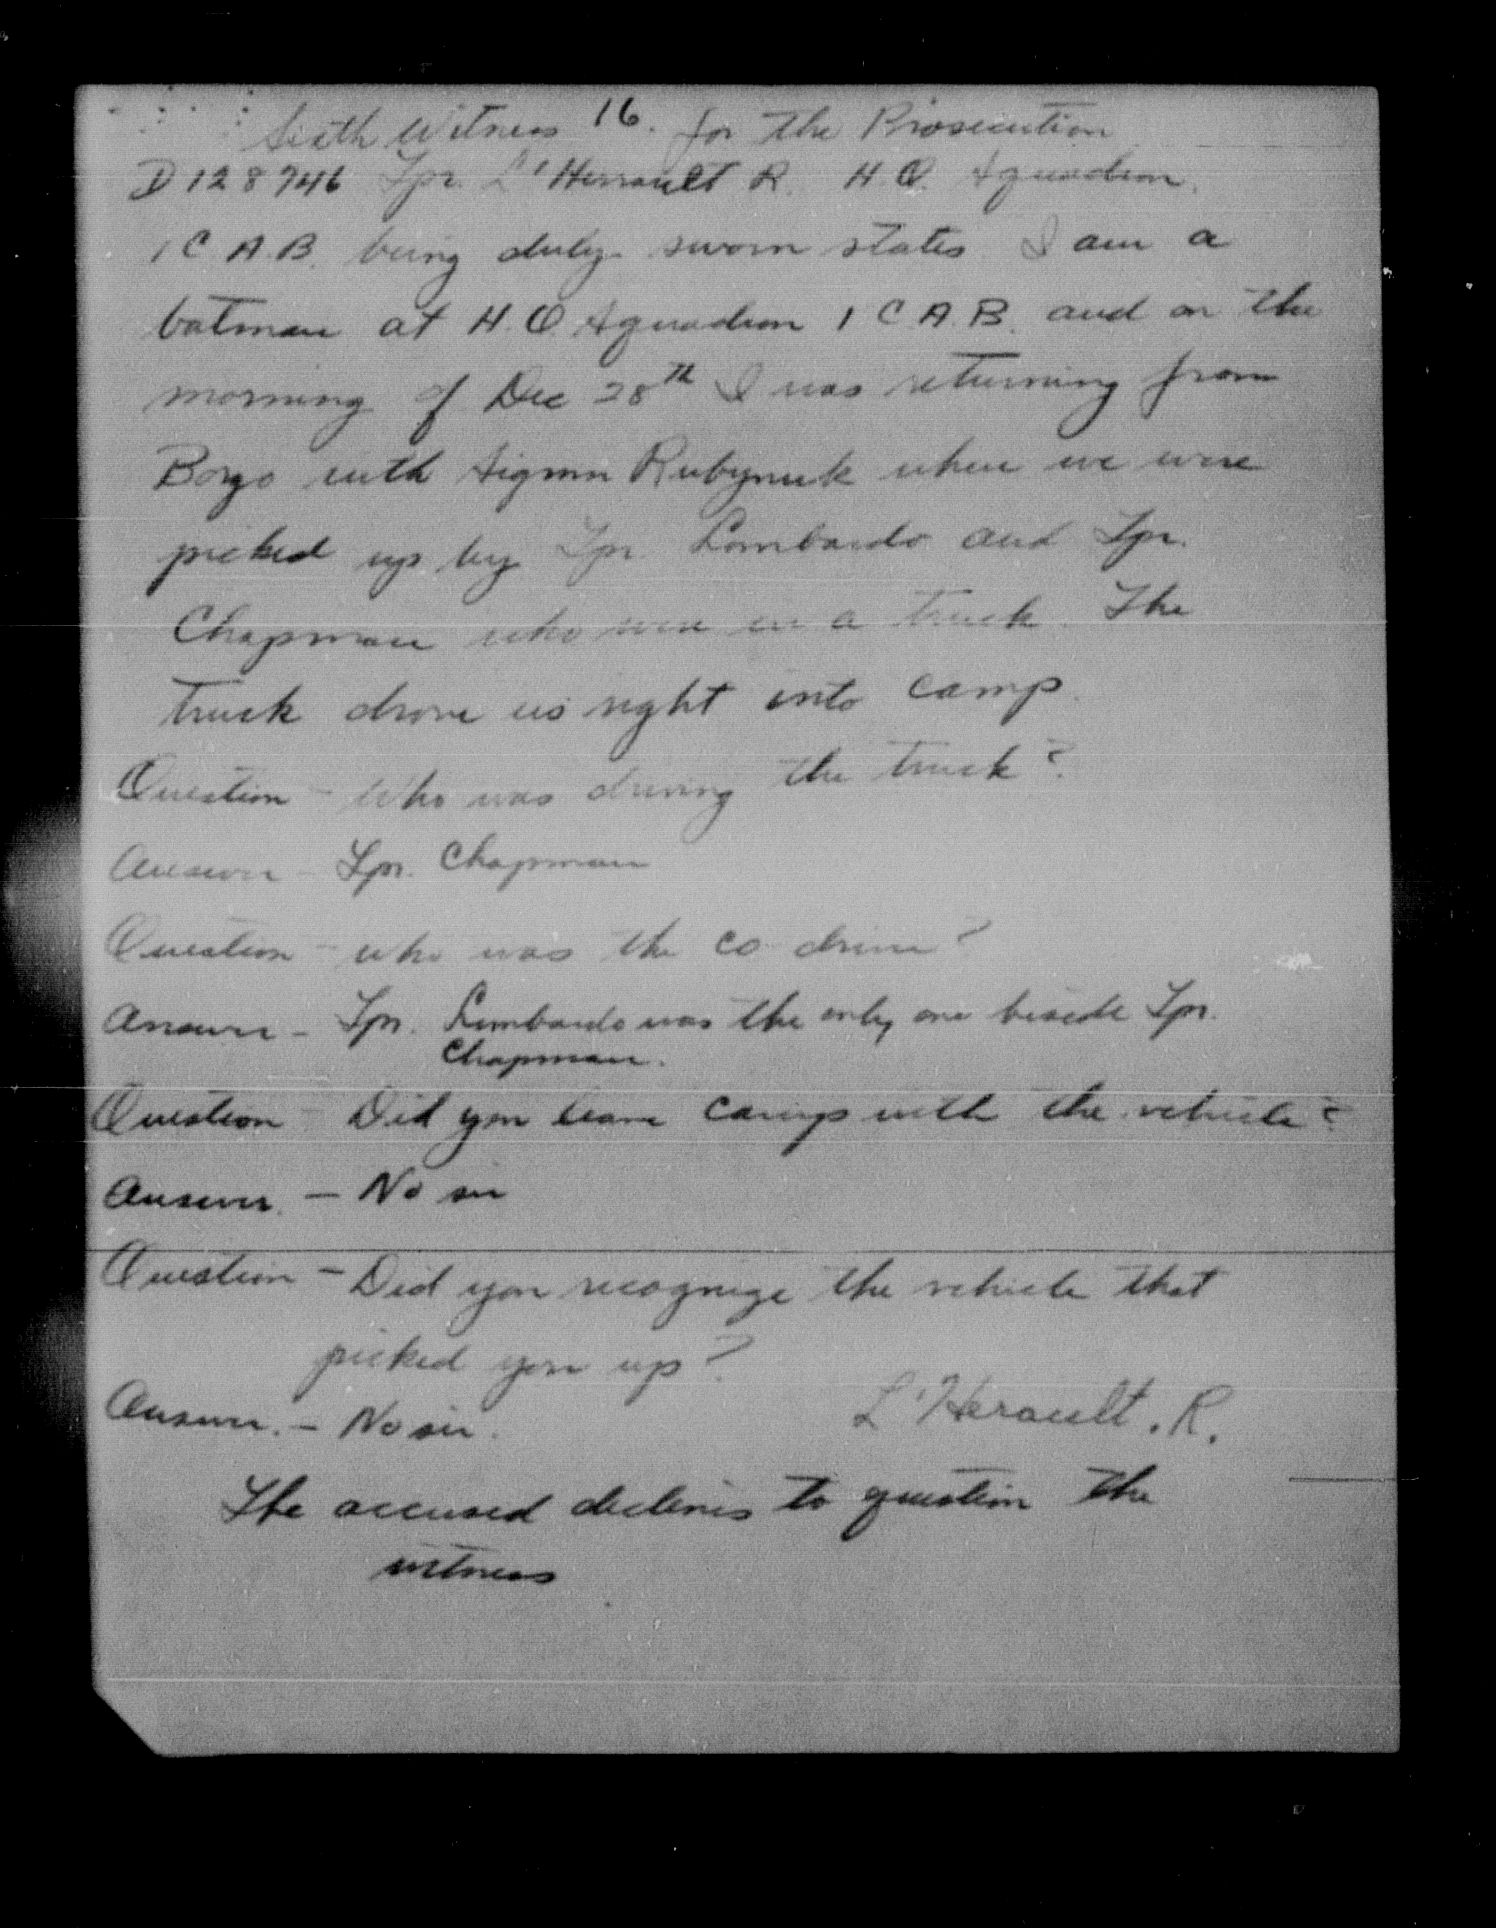 16.
Sixth Witness for the Prosecution
D128746 Tpr. L'Herrault R. H.Q. Squadron.
1 C A.B. being duly sworn states I am a
batman at H.Q Squadron 1 C A.B. and on the
morning of Dec 28th I was returning from
Borgo with Sigmn Rubynuk when we were
picked up by Tpr Lombardo and Tpr.
Chapman who were in a truck. The
truck drove us right into camp.
Question - Who was driving the truck?
Answer - Tpr. Chapman
Question - who was the co driver?
Answer - Tpr. Lombardo was the only one beside Tpr.
Chapman.
Question - Did you leave camp with the vehicle?
Answer. - No sir
Question - Did you recognize the vehicle that
picked you up?
Answer. - No sir.
L'Herault. R.
The accused declines to question the
witness